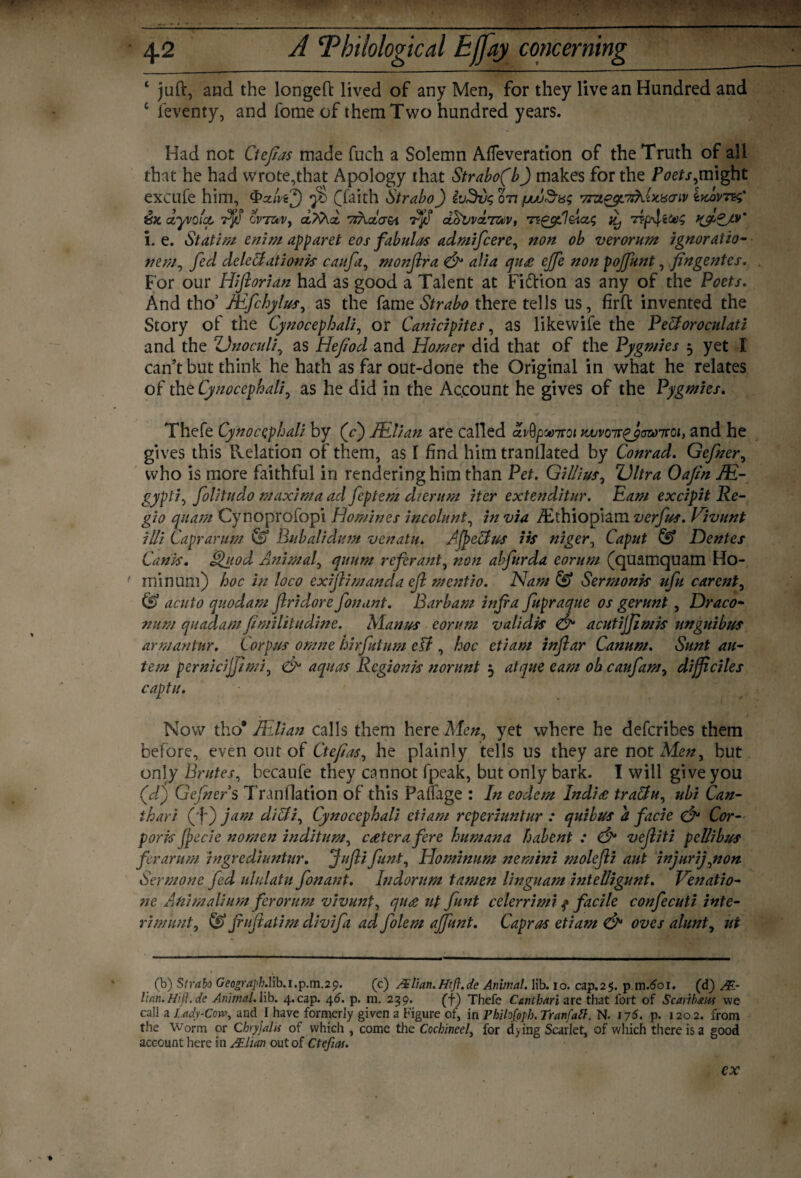 42 A Philological Eſſay concerning
‘ juſt, and the longeſt lived of any Men, for they live an Hundred and
‘ ſeventy, and ſome of them Two hundred years.
Had not Cteſias made ſuch a Solemn Aſſeveration of the Truth of all
that he had wrote, that Apology that Strabo(b) makes for the Poets, might
excuſe him, Φαίνε) γὸ (ſaith Strabo) ἐυθὺς ὅτι μύθȣς παραπλέκȣσιν ἑκόντες·
ȣκ ἀγνοίᾳ τῶν ὄντων, ἀλλὰ πλάσει τῶν ἀδυνάτων, τερατείας ϗ τέρψεως χάριν·
i. e. Statim enim apparet eos fabulas admiſcere, non ob verorum ignoratio-
nem, ſed delectationis cauſa, monſtra & alia quæ eſſe non poſſunt, fingentes.
For our Hiſtorian had as good a Talent at Fiction as any of the Poets.
And tho’ Æſchylus, as the ſame Strabo there tells us, firſt invented the
Story of the Cynocephali, or Canicipites, as likewiſe the Pectoroculati
and the Unoculi, as Heſiod and Homer did that of the Pygmies ; yet I
can’t but think he hath as far out-done the Original in what he relates
of the Cynocephali, as he did in the Account he gives of the Pygmies.
Theſe Cynocephali by (c) Ælian are called ἄνθρωποι κυνοπρόσωποι, and he
gives this Relation of them, as I find him tranſlated by Conrad. Geſner,
who is more faithful in rendering him than Pet. Gillius, Ultra Oaſin Æ-
gypti, ſolitudo maxima ad ſeptem dierum iter extenditur. Eam excipit Re-
gio quam Cynoproſopi Homines incolunt, in via Æthiopiam verſus. Vivunt
illi Caprarum & Bubalidum venatu. Aſpectus iis niger, Caput & Dentes
Canis. Quod Animal, quum referant, non abſurda eorum (quamquam Ho-
minum) hoc in loco exiſtimanda eſt mentio. Nam & Sermonis uſu carent,
& acuto quodam ſtridore ſonant. Barbam infra ſupraque os gerunt , Draco-
num quadam ſimilitudine. Manus eorum validis & acutiſſimis unguibus
armantur. Corpus omne hirſutum eſt , hoc etiam inſtar Canum. Sunt au-
tem perniciſſimi, & aquas Regionis norunt ; atque eam ob cauſam, difficiles
captu.
Now tho’ Ælian calls them here Men, yet where he deſcribes them
before, even out of Cteſias, he plainly tells us they are not Men, but
only Brutes, becauſe they cannot ſpeak, but only bark. I will give you
(d) Geſner’s Tranſlation of this Paſſage : In eodem Indiæ tractu, ubi Can-
thari (†) jam dicti, Cynocephali etiam reperiuntur : quibus à facie & Cor-
poris ſpecie nomen inditum, cætera fere humana habent : & veſtiti pellibus
ferarum ingrediuntur. Juſti ſunt, Hominum nemini moleſti aut injurij, non
Sermone ſed ululatu ſonant. Indorum tamen linguam intelligunt. Venatio-
ne Animalium ferorum vivunt, quæ ut ſunt celerrimi , facile conſecuti inte-
rimunt, & fruſtatim diviſa ad ſolem aſſunt. Capras etiam & oves alunt, ut
(b) Strabo Geograph. lib. 1. p. m. 29. (c) Ælian. Hiſt. de Animal. lib. 10. cap. 25. p. m. 601. (d) Æ-
lian. Hiſt. de Animal. lib. 4. cap. 46. p. m. 239. (†) Theſe Canthari are that ſort of Scaribæus we
call a Lady-Cow, and I have formerly given a Figure of, in Philoſoph. Tranſact. N. 176. p. 1202. from
the Worm or Chryſalis of which , come the Cochineel, for dying Scarlet, of which there is a good
account here in Ælian out of Cteſias.
ex